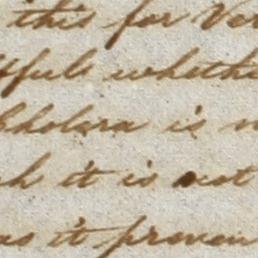 this for Ver
tful whethe
Cholera is n
h it is not
as it proven